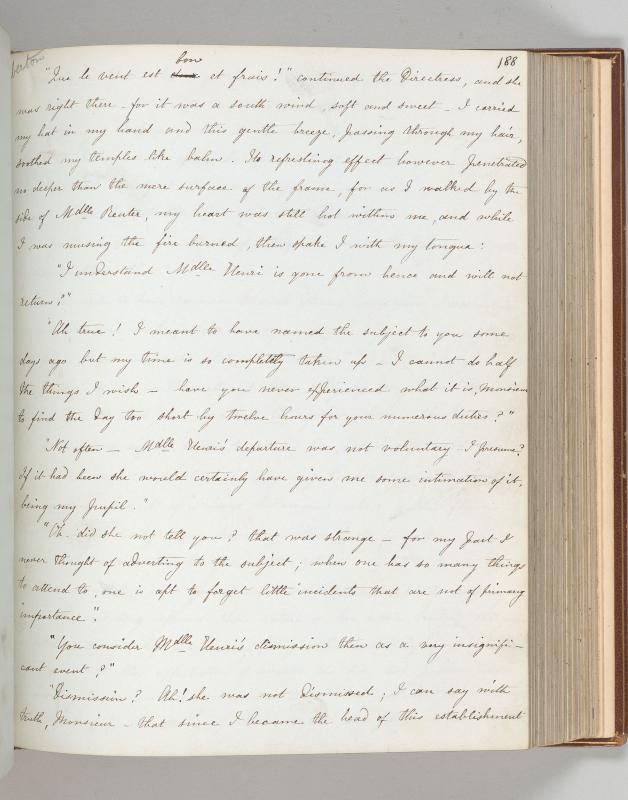 berton
188
bon
"Que le vent est doux et frais!" continued the Directress, and she
was right there – for it was a south wind soft and sweet – I carried
my hat in my hand and this gentle breeze, passing through my hair,
soothed my temples like balm. Its refreshing effect however penetrated
no deeper than the mere surface of the frame, for as I walked by the
side of Mdlle Reuter, my heart was still hot within me, and while
I was musing the fire burned, then spake I with my tongue:
"I understand Mdlle Henri is gone from hence and will not
return?"
"Ah true! I meant to have named the subject to you some
days ago but my time is so completely taken up – I cannot do half
the things I wish – have you never experienced what it is, Monsieur
to find the day too short by twelve hours for your numerous duties?"
"Not often – Mdlle Henri's departure was not voluntary I presume?
If it had been she would certainly have given me some intimation of it,
being my pupil."
"Oh did she not tell you? that was strange – for my part I
never thought of adverting to the subject; when one has so many things
to attend to, one is apt to forget little incidents that are not of primary
importance".
"You consider Mdlle Henri's dismission then as a very insignifi-
cant event?"
"Dismission? Ah! she was not dismissed; I can say with
truth, Monsieur – that since I became the head of this establishment